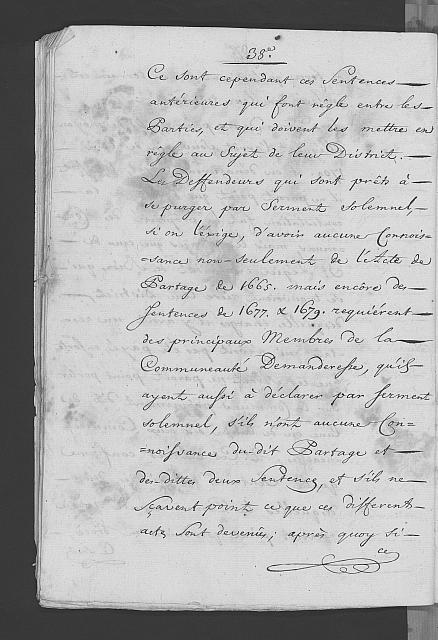 38.e
Ce sont cependant ces Sentences
antérieures qui font règle entre les
Parties, et qui doivent les mettre en
règle au Sujet de leur District.
Les Deffendeurs qui sont prêts à
se purger par Serment Solemnel,
si on l'éxige, d'avoir aucune Connois=
=sance non-seulement de l'Acte de
Partage de 1665. mais encore des
Sentences de 1677. & 1679. requiérent
des principaux Membres de la
Communeauté Demanderesse, qu'ils
ayent aussi à déclarer par Serment
solemnel, s'ils n'ont aucune Con=
=noissance du-dit Partage et
des-dittes deux Sentences, et s'ils ne
sçavent point ce que ces différents
actes sont devenus; après quoy si-
ce